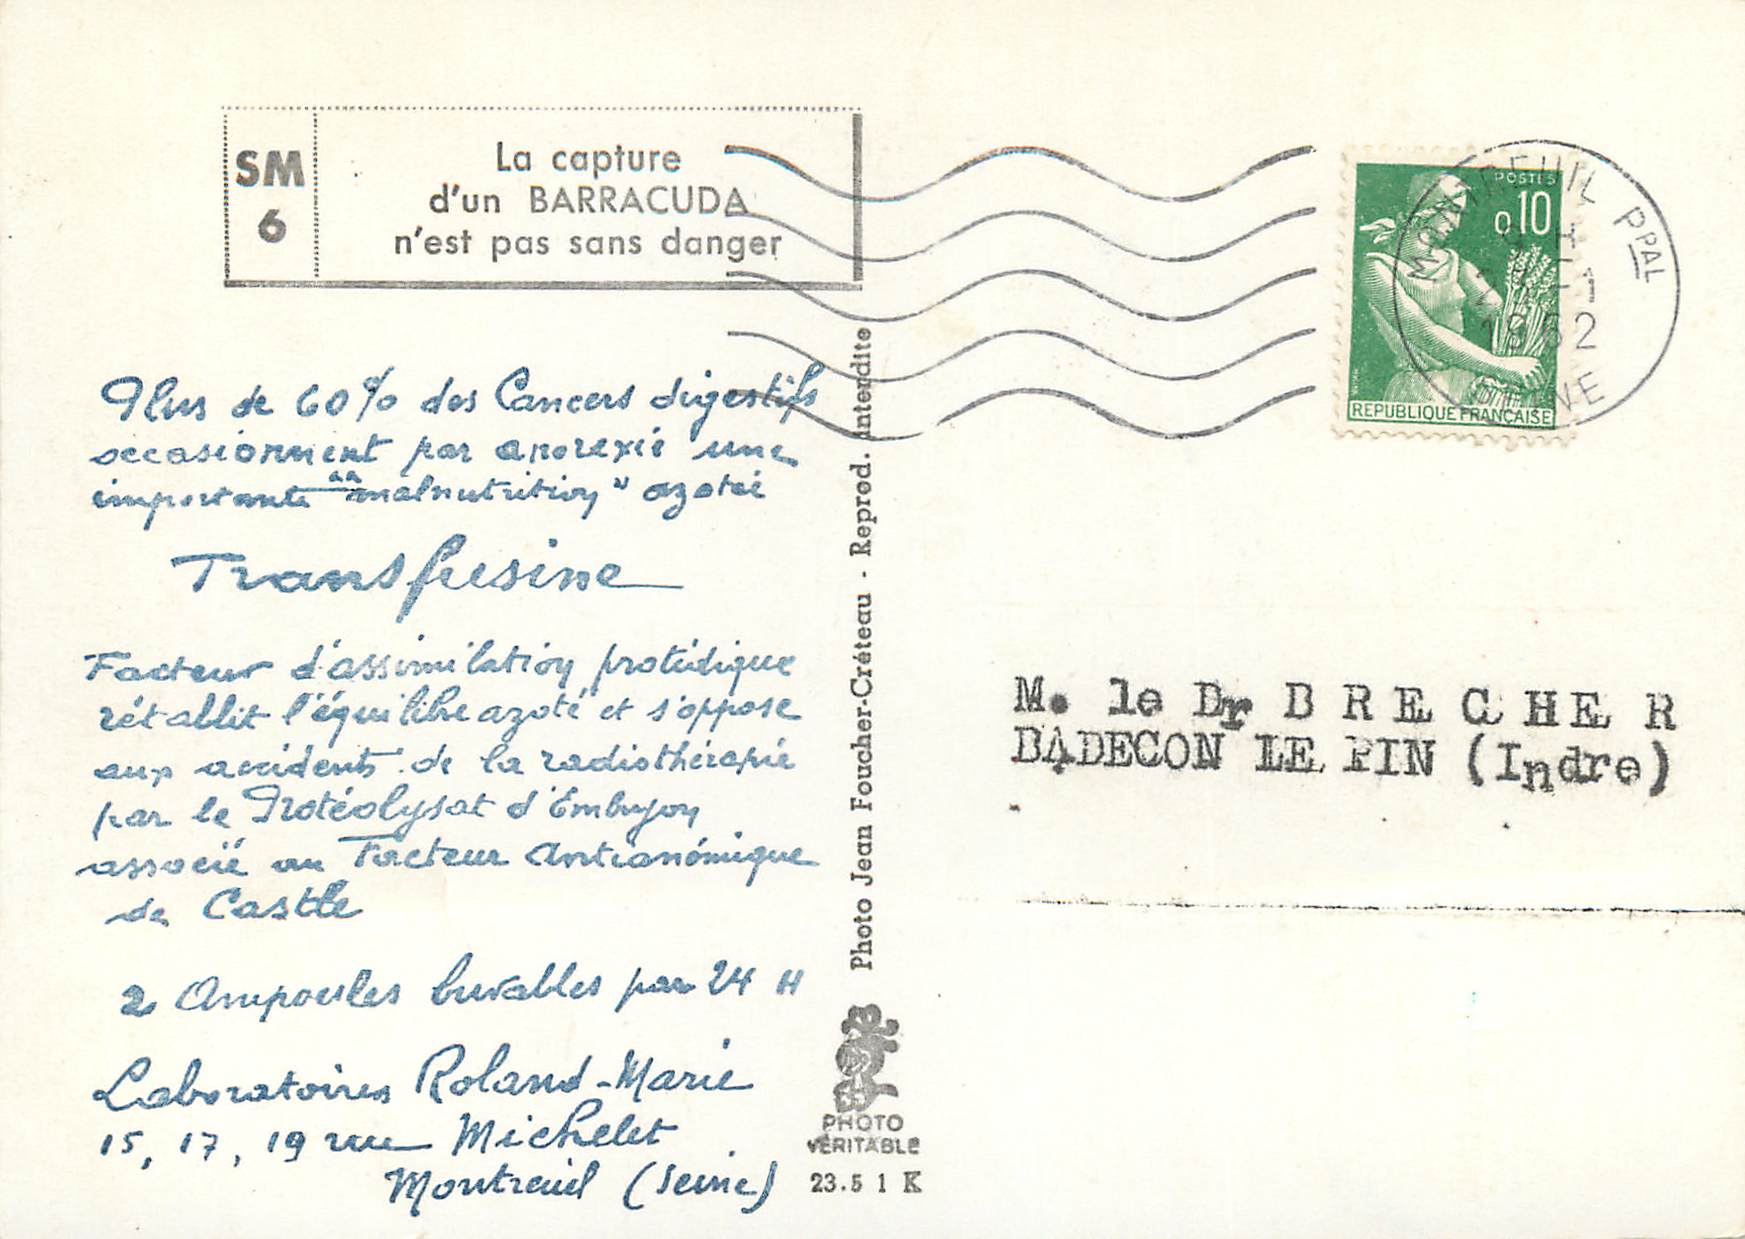 SM
6
La capture
d'un BARRACUDA
n'est pas sans danger
POSTES
0,10
REPUBLIQUE FRANÇAISE
MONTREUIL PPAL
1962
SEINE
Plus de 60% des Cancers digestifs
occasionnent par anorexie une
importante "malnutrition" azotée
Transfusine
Facteur d'assimilation protidique
rétablit l'équilibre azoté et s'oppose
aux accidents de la radiothérapie
par le Protéolysat d'Embryon
associé au Facteur Antianémique
de Castle
2 Ampoules buvables par 24 H
Laboratoires Roland-Marie
15, 17, 19 rue Michelet
Montreuil (Seine)
Photo Jean Foucher-Créteau - Reprod. interdite
PHOTO
VÉRITABLE
23.5 1 K
M. le Dr BRECHER
BADECON LE PIN (Indre)